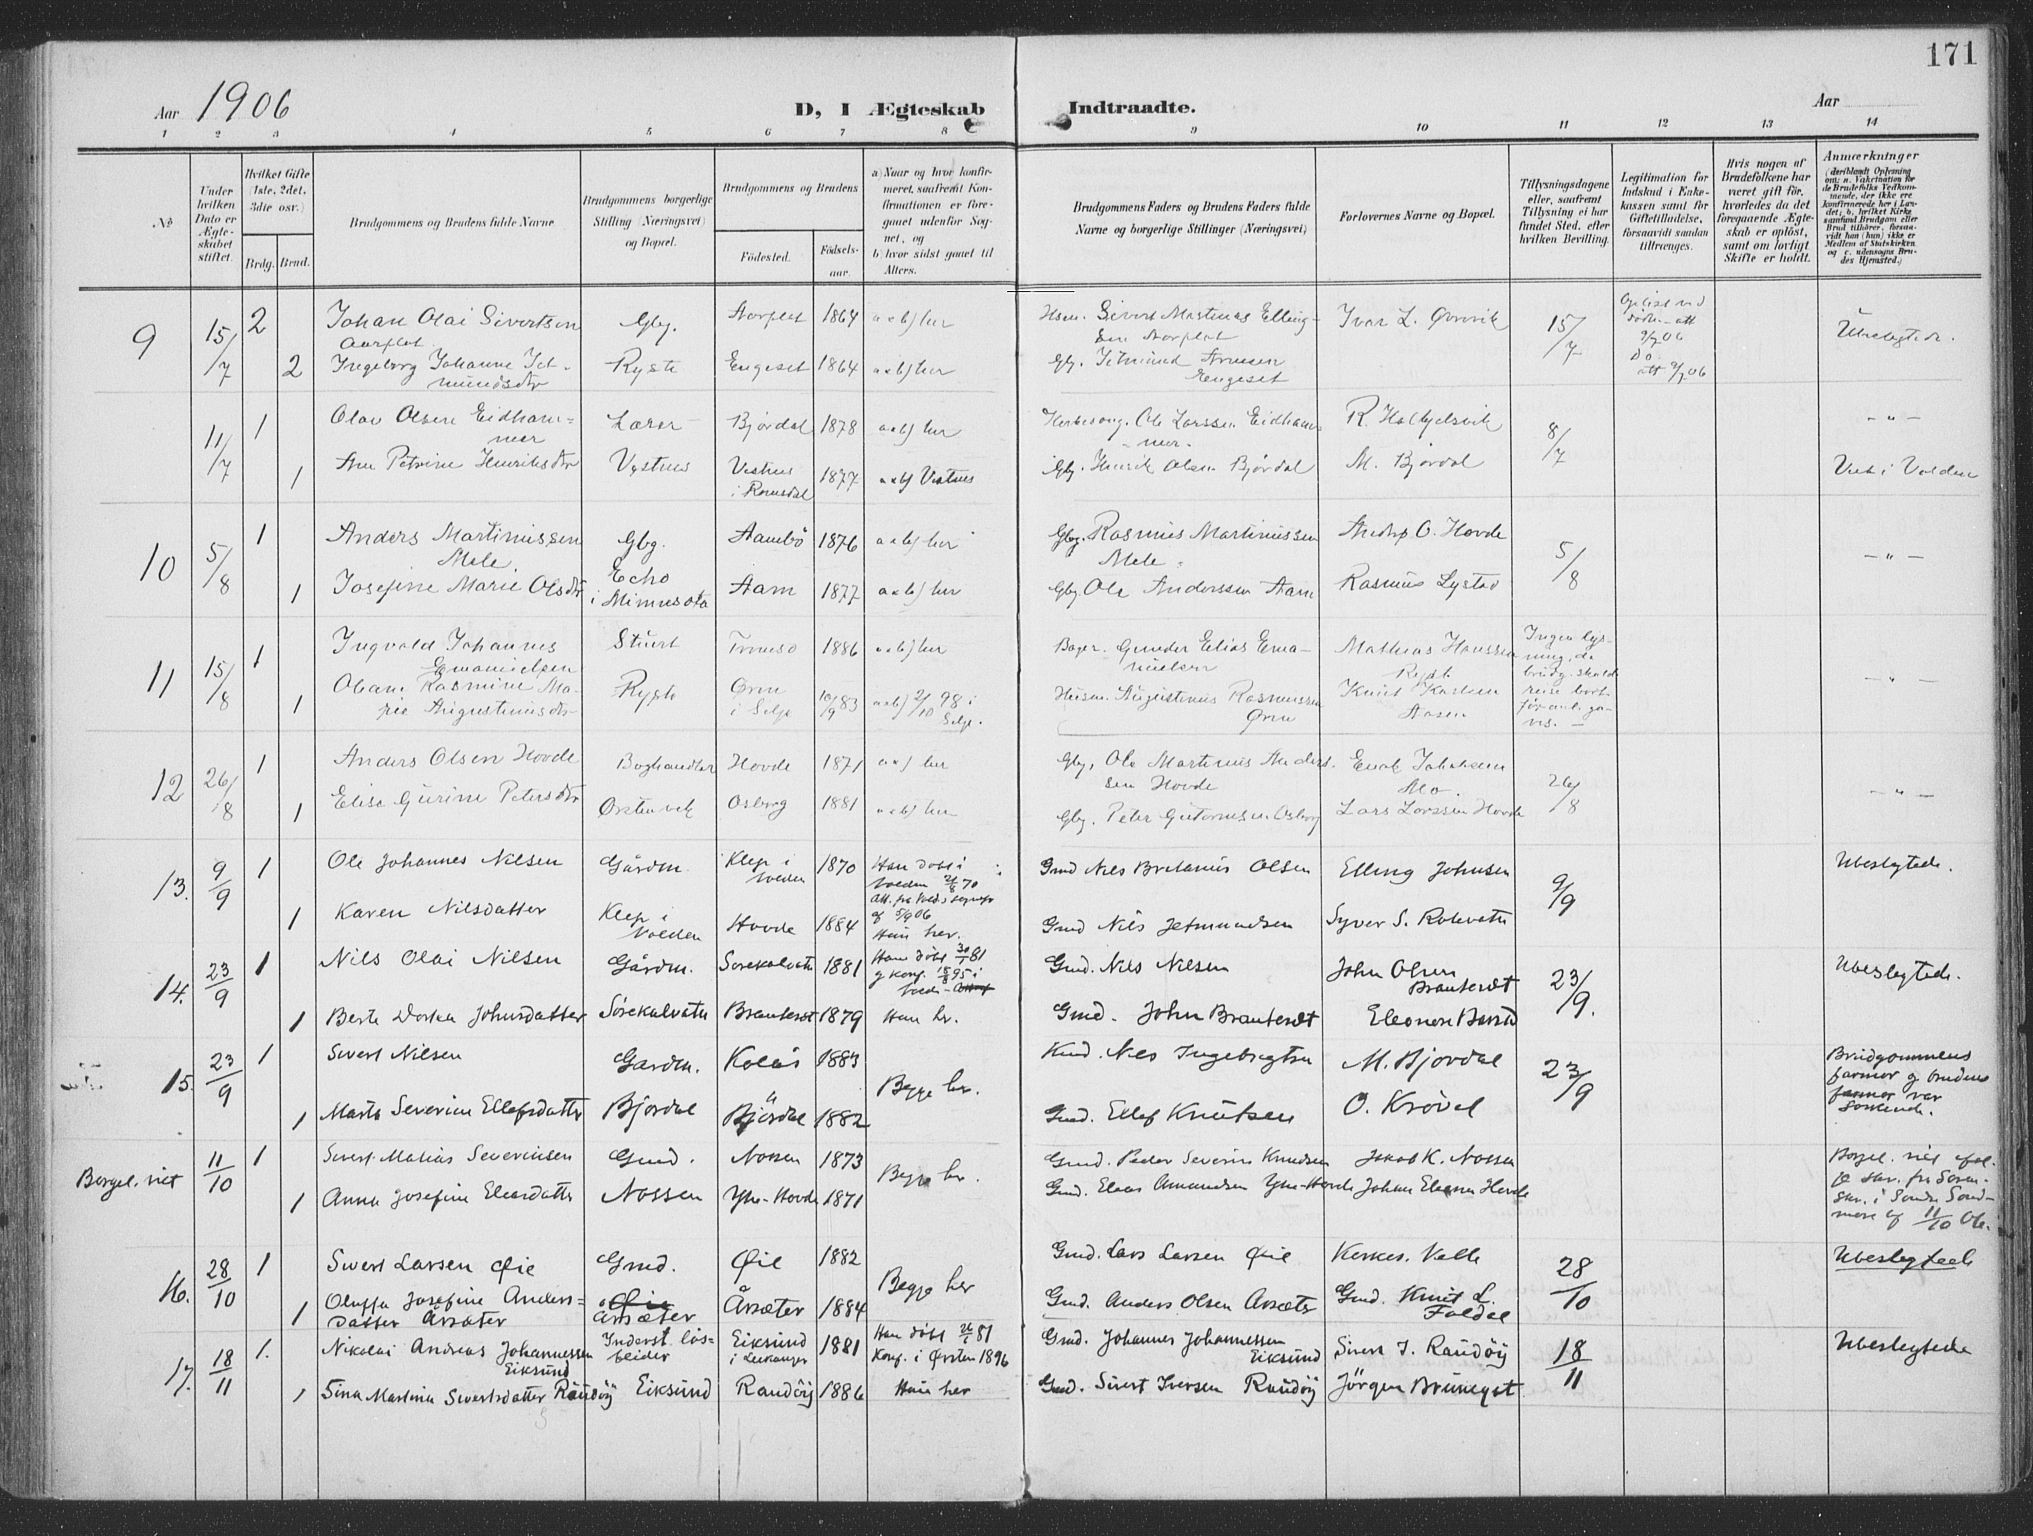 171
Aar 1906
D, I Ægteskab Indtraadte.
Aar
1 2 3 4 5 6 7 8 9 10 11 12 13 14
No
Under hvilken Dato er Ægteskabet stiftet.
Hvilket Gifte (1ste, 2det, 3die osv.)
Brdg. Brud.
Brudgommens og Brudens fulde Navne
Brudgommens borgerlige Stilling (Næringsvei) og Bopæl.
Brudgommens og Brudens
Fødested. Fødselsaar.
a) Naar og hvor konfirmeret, saafremt Konfirmationen er foregaaet udenfor Sognet, og
b) hvor sidst gaaet til Alters.
Brudgommens Faders og Brudens Faders fulde Navne og borgerlige Stillinger (Næringsvei)
Forlovernes Navne og Bopæl.
Tillysningsdagene eller, saafremt Tillysning ei har fundet Sted, efter hvilken Bevilling.
Legitimation for Indskud i Enkekassen samt for Giftetilladelse, forsaavidt saadan tiltrænges.
Hvis nogen af Brudefolkene har været gift før, hvorledes da det foregaaende Ægteskab er opløst, samt om lovligt Skifte er holdt.
Anmærkninger
(deriblandt Oplysning om: a. Vakcination for de Brudefolks Vedkommende, der ikke ere konfirmerede her i Landet; b. hvilket Kirkesamfund Brudgom eller Brud tilhører, forsaavidt han (hun) ikke er Medlem af Statskirken og c. udensogns Brudes Hjemsted.)
9 15/7 2 Johan Olai Sivertsen Gbg. Aarflot 1864 a & b) her Hsm. Sivert Martinus Elling- Ivar L. Ørsvik 15/7 Ubeslegtede.
Aarflot sen Aarflot
2 Ingeborg Johanne Jet- Ryste Engeset 1864 a & b) her Gbg. Jetmund Arnesen
mundsdtr Engeset
11/7 1 Olav Olsen Eidham- Lærer Bjørdal 1878 a & b) her Ole Larssen Eidham- R. Halkjelsvik 8/7 - " -
mer mer.
1 Ane Petrine Henriksdtr Vestnes Vestnes 1877 a & b) Vestnes Gbg. Henrik Olsen Bjørdal M. Bjørdal Viet i Volden
i Romsdal
10 5/8 1 Anders Martinussen Gbg. Aambø 1876 a & b) her Gbg. Rasmus Martinussen O. Hovde 5/8 - " -
Mele Echo Mele.
1 Josefine Marie Olsdtr i Minnesota Aam 1877 a & b) her Gbg. Ole Anderssen Aam Rasmus Lystad
11 15/8 1 Ingvald Johannes Stuert Tromsø 1886 a & b) her Bager. Gunder Elias Ema- Mathias Hanssen Ingen lys-
Emanuelsen nuelsen Ryste ning, da
1 Rasmine Ma- Ryste Ørin 10/9 83 a & b) 2/10 98 i Husm. Augustinus Rasmussen Knut Karlsen brudg. skulde - " -
rie Augustinusdtr i Selje Selje. Ørin Aasen reise bort
12 26/8 1 Anders Olsen Hovde Boghandler Hovde 1871 a & b) her Gbg. Ole Martinus Anders- Johansen 26/8 - " -
sen Hovde Mo.
1 Elise Gurine Petersdtr Ørstenvik Osborg 1881 a & b) her Gbg. Peter Guttormsen Osborg Lars Larssen Hovde
13. 9/9 1 Ole Johannes Nilsen Gårdm. Klep i 1870 Han døbt i Gmd Nils Britanus Olsen Elling Johnsen 9/9 Ubeslegtede.
Volden Volden 21/8 70
1 Karen Nilsdatter Klep i Hovde 1884 af 5/9 06 Gmd Nils Jetmundsen Syver S. Rotevatn
Volden Hun her.
14. 23/9 1 Nils Olai Nilsen Gårdm. Sørekalvatn 1881 Han døbt 30/1 81 Gmd. Nils Nilsen John Olsen 23/9. Ubeslegtede.
g konf. 18/8 95 i Brauteset
1 Berte Dortea Johnsdatter Sørekalvatn Brauteset 1879 Hun her. Gmd. John Brauteset Eleonore
15. 23/9 1 Sivert Nilsen Gardm. Kolås 1883 Begge her. Nils Ingebrigtsen M. Bjørdal 23/9 Brudgommens
farmor g brudens
1 Marte Severine Ellefsdatter Bjørdal Bjørdal 1882 Gmd. Ellef Knutsen O. Krøvel farmor var
Søskende.
Borgel. viet 11/10 1 Sivert Matias Severinsen Gmd. Nossen 1873 Begge her. Gmd. Peder Severin Knudsen Jakob K. Nossen Borgel. viet
1 Anna Josefine Eleasdatter Nossen Ytre-Hovde 1871 Gmd. Elias Amundsen Ytre-Hovde Johan Hovde skr. i Søndre Sønd-
møre af 11/10 06.
16. 28/10 1 Sivert Larsen Øie Gmd. Øie 1882 Begge her Gmd. Lars Larsen Øie Velle 28/10 Ubeslegtede
1 Oluffa Josefine Anders- Øie Årsæter 1884 Gmd. Anders Olsen Årsæter Gmd. Knut L.
datter Årsæter Årsæter Foldal
17. 18/11 1. Nikolai Andreas Johannessen Inderst løs- Eiksund 1881 Han døbt 26/1 81 Gmd. Johannes Johannessen Sivert I. Randöy 18/11 Ubeslegtede
Eiksund beider i Konf. i Ørsten 1896 Eiksund
1 Sina Martina Sivertsdatter Randöy Eiksund Randöy 1886 Hun her Gmd. Sivert Iversen Randöy Jörgen Brunegot